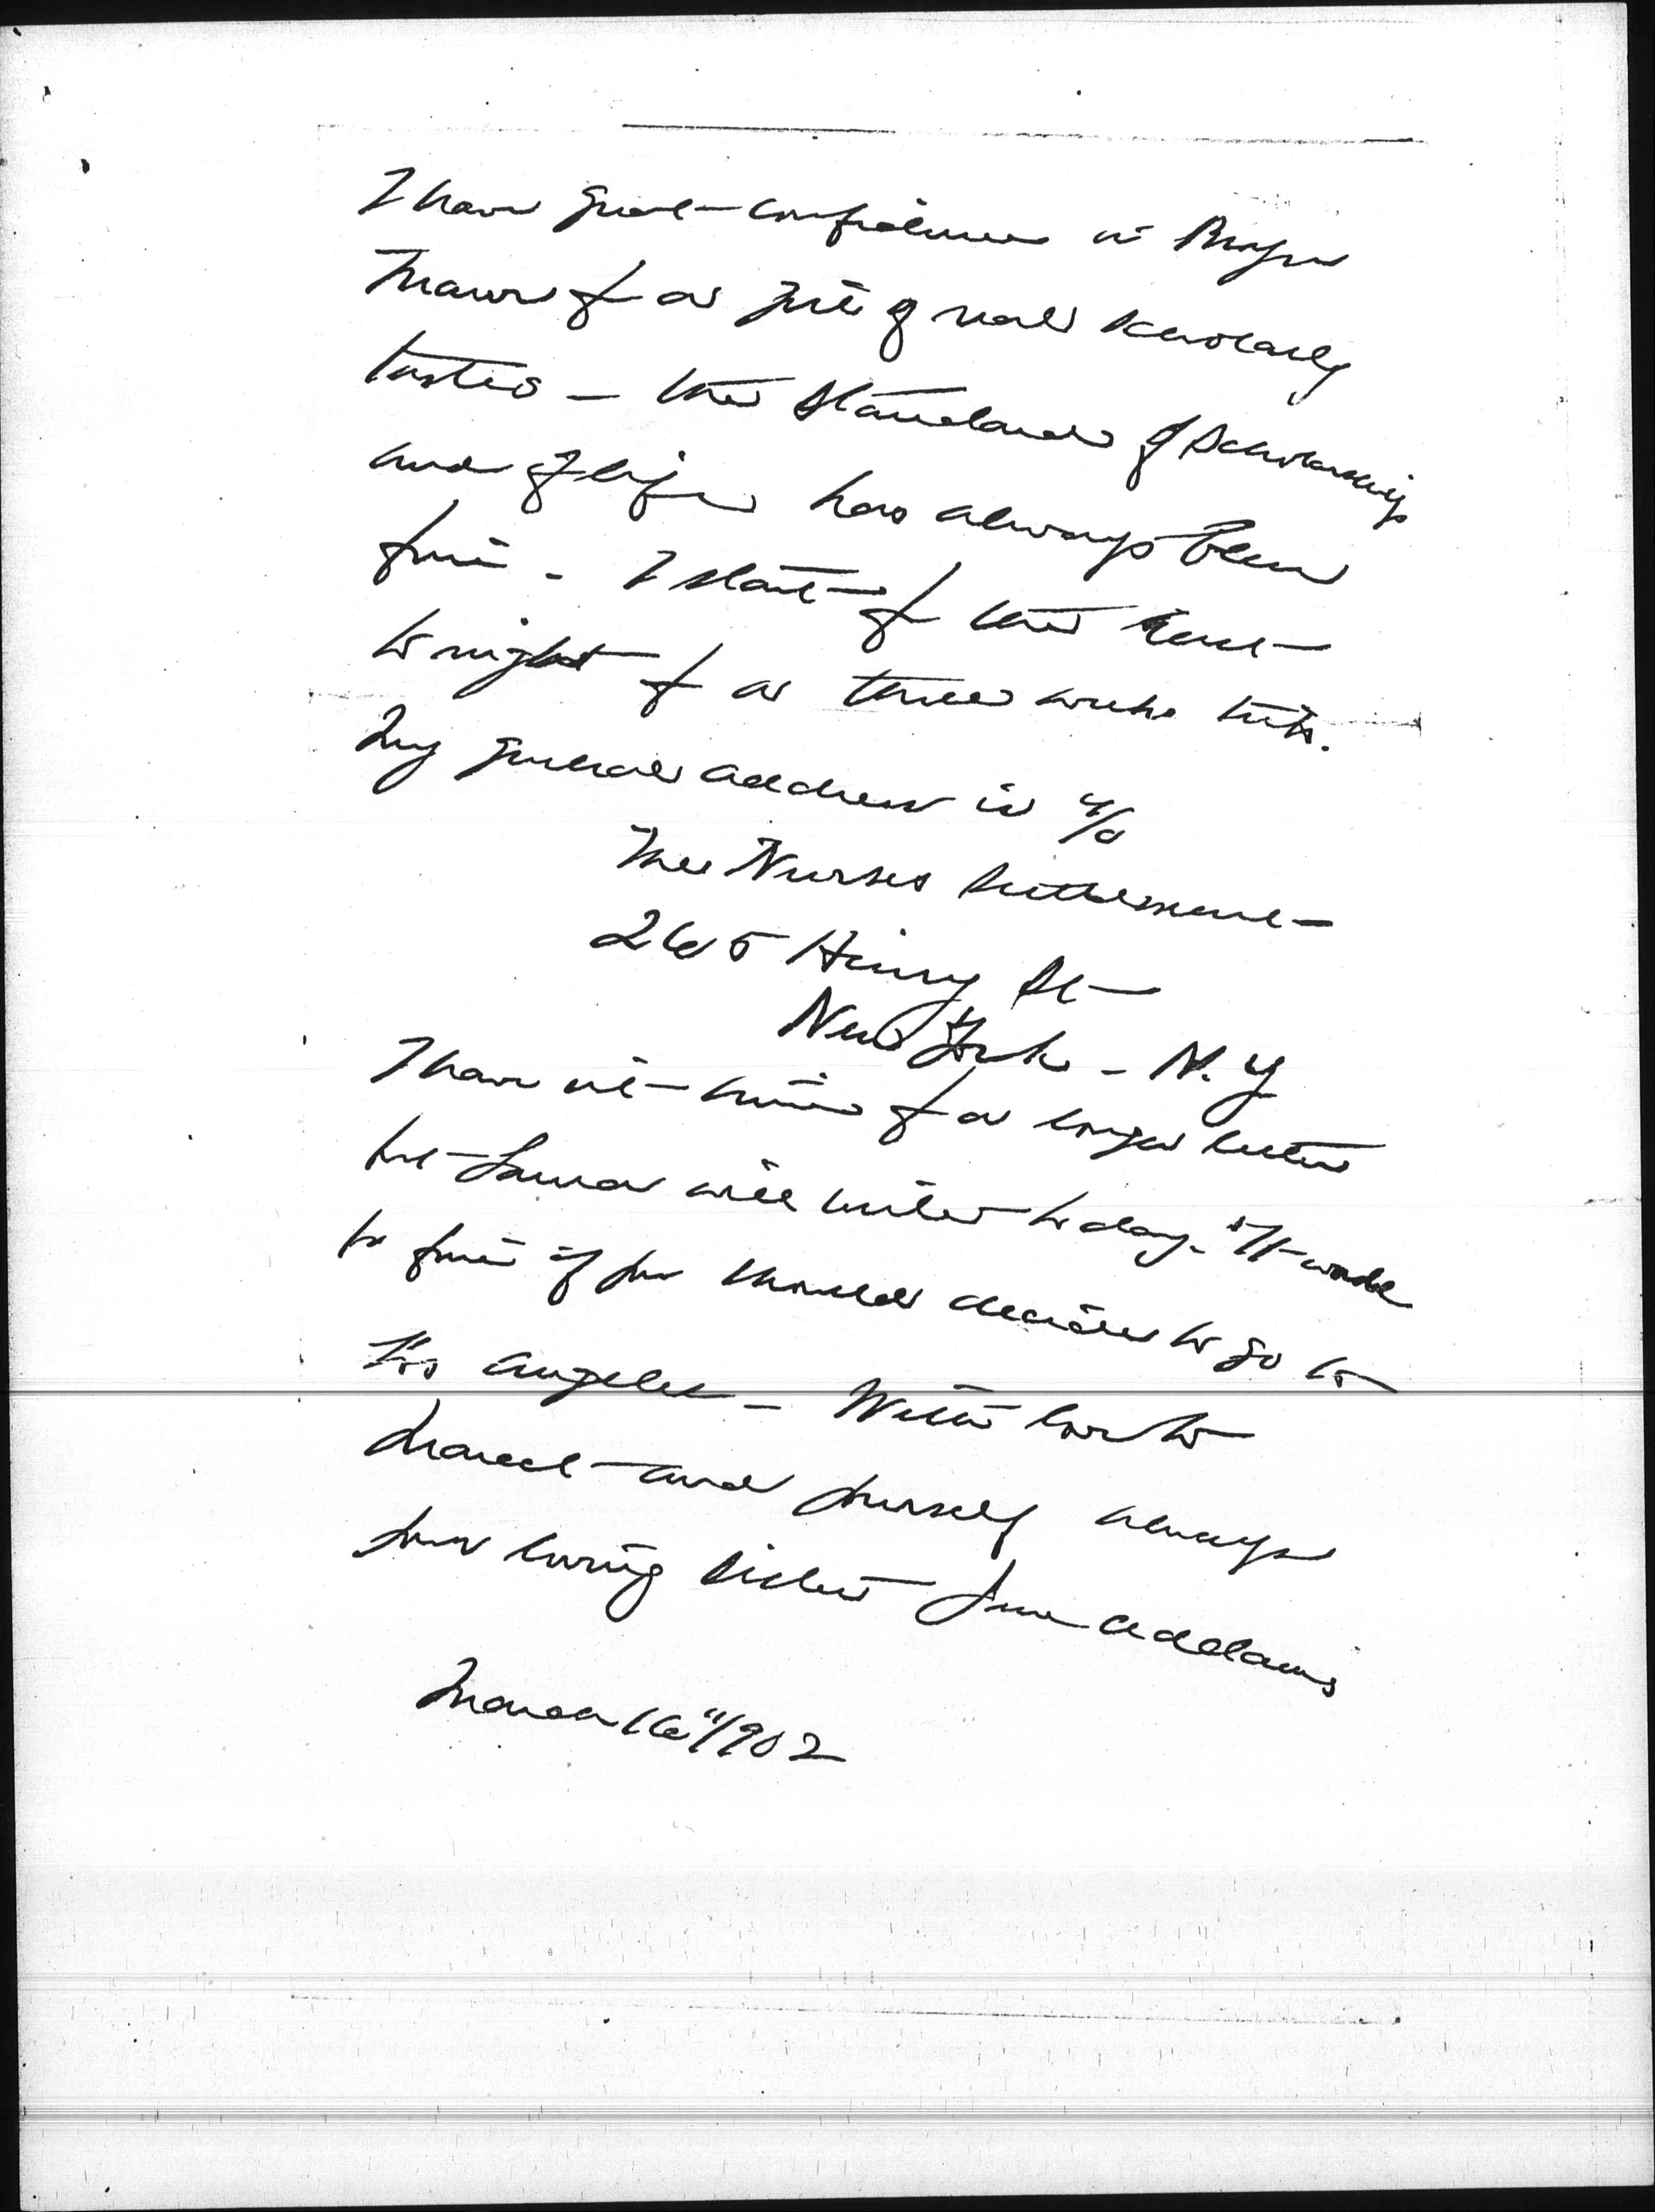 I have great confidence in Bryn
Mawr for a girl of real scholarly
tastes — the standard of scholarship
and of life has always been
fine. I start for the East
tonight for a three weeks trip.
My general address is c/o
The Nurses Settlement
265 Henry St
New York - N.Y
I have not time for a longer letter
but Laura will write today. It would
be fine if you should decide to go to
Los Angeles — With love to
Marcet and yourself always
your loving sister Jane Addams
March 16" 1902